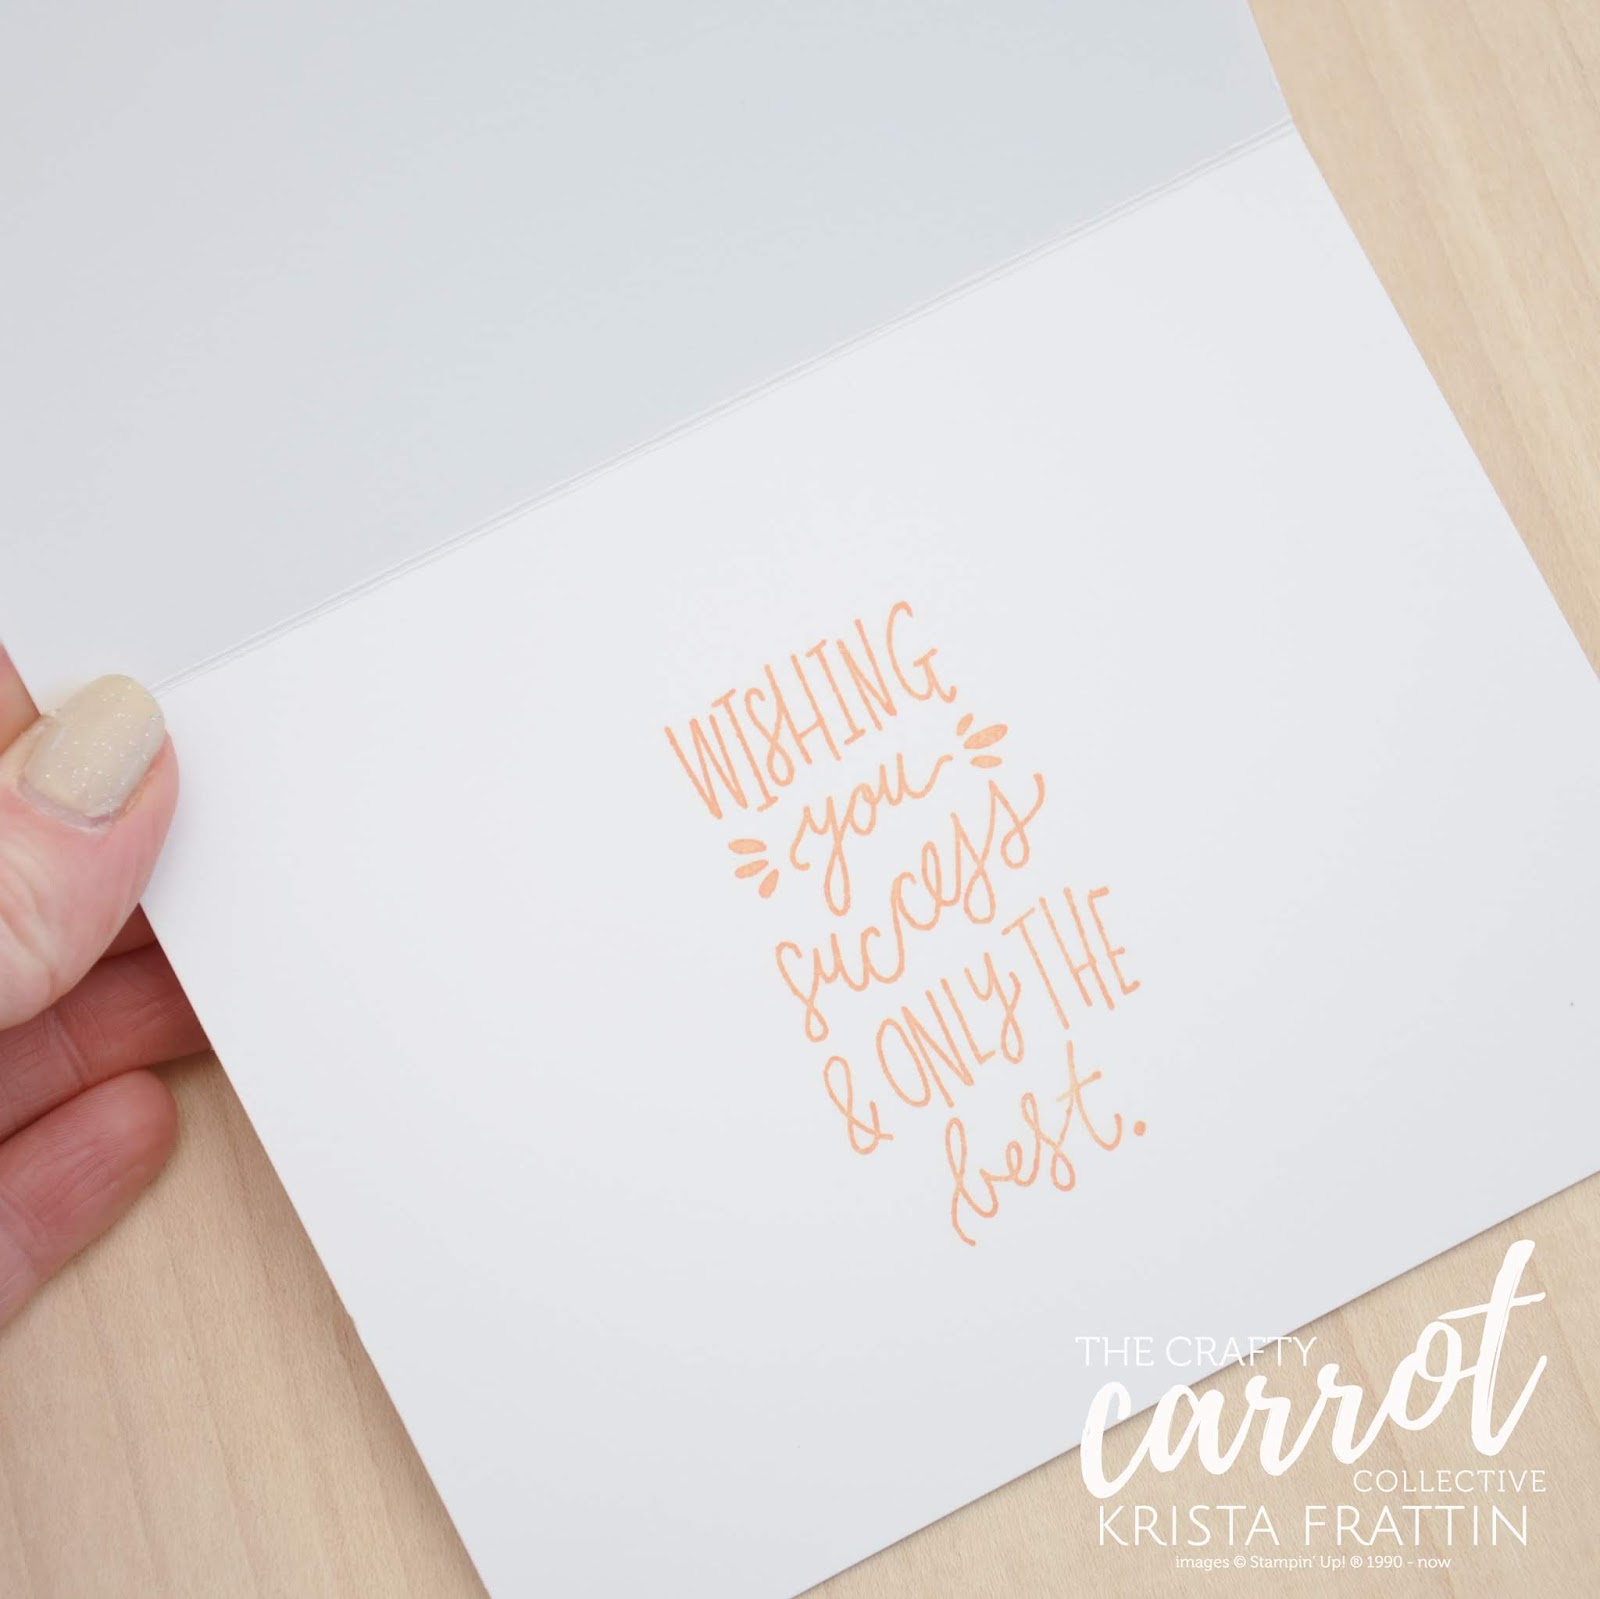 WISHING
you
success
& ONLY THE
best.
THE CRAFTY
carrot
COLLECTIVE
KRISTA FRATTIN
images © Stampin' Up! ® 1990 - now